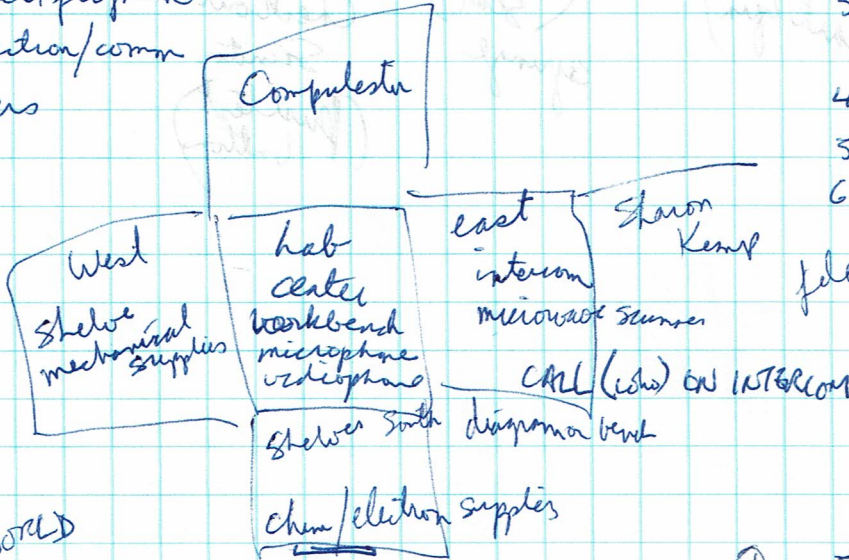 ction/comm
ers
Compulestor
4
5
6
West
shelve
mechanical
supplies
Lab
center
workbench
microphone
videophone
east
intercom
microwave scanner
Sharon
Kemp
file
CALL (who) ON INTERCOM
shelves South
diagram on bench
chem/electron supplies
WORLD